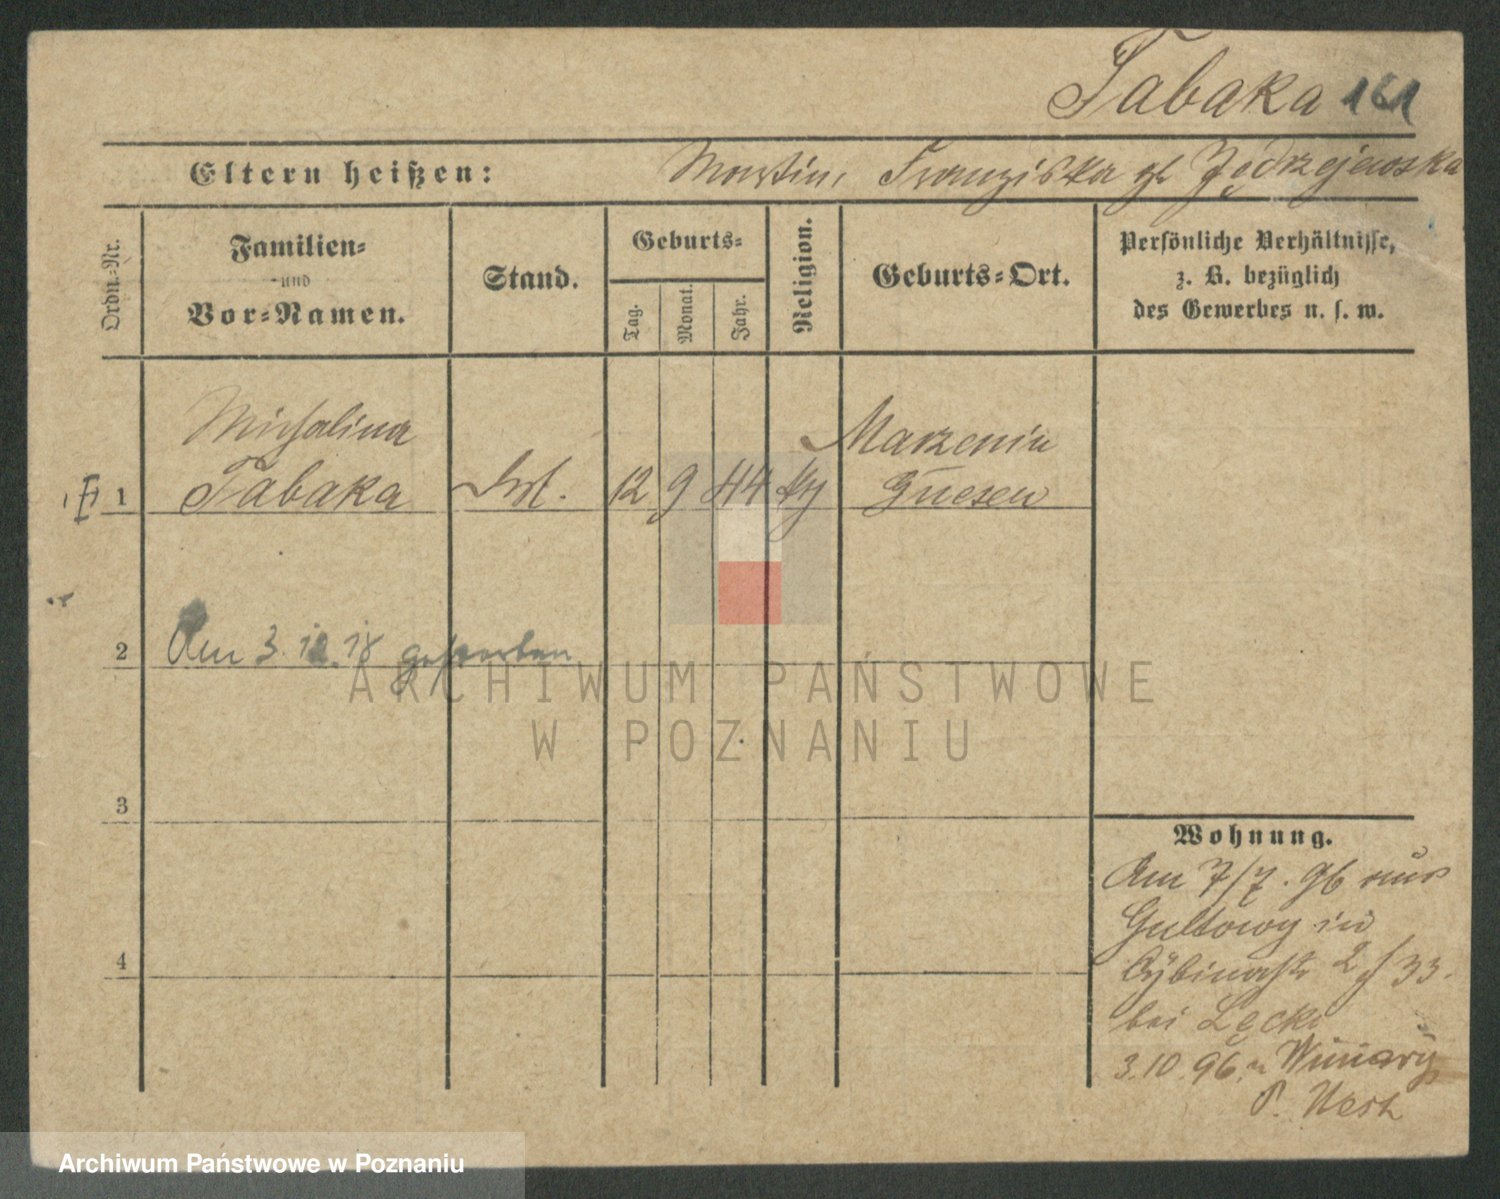 Tabaka 161
Eltern heißen: Martin, Franziska gb Jędrzejewska
Ordn.-Nr.
Familien-
und
Vor-Namen.
Stand.
Geburts-
Tag.
Monat.
Jahr.
Religion.
Geburts-Ort.
Persönliche Verhältnisse,
z. B. bezüglich
des Gewerbes u. s. w.
Michalina
Marzenin
1 Tabaka 12 9 44 Gnesen
2 Am 3. 12. 18 gestorben
3
4
Wohnung.
Am 7/7. 96 aus
Gultowy in
33.
bei Łęcki
3.10.96. n Winiary
P. West
ARCHIWUM PAŃSTWOWE
W POZNANIU
Archiwum Państwowe w Poznaniu